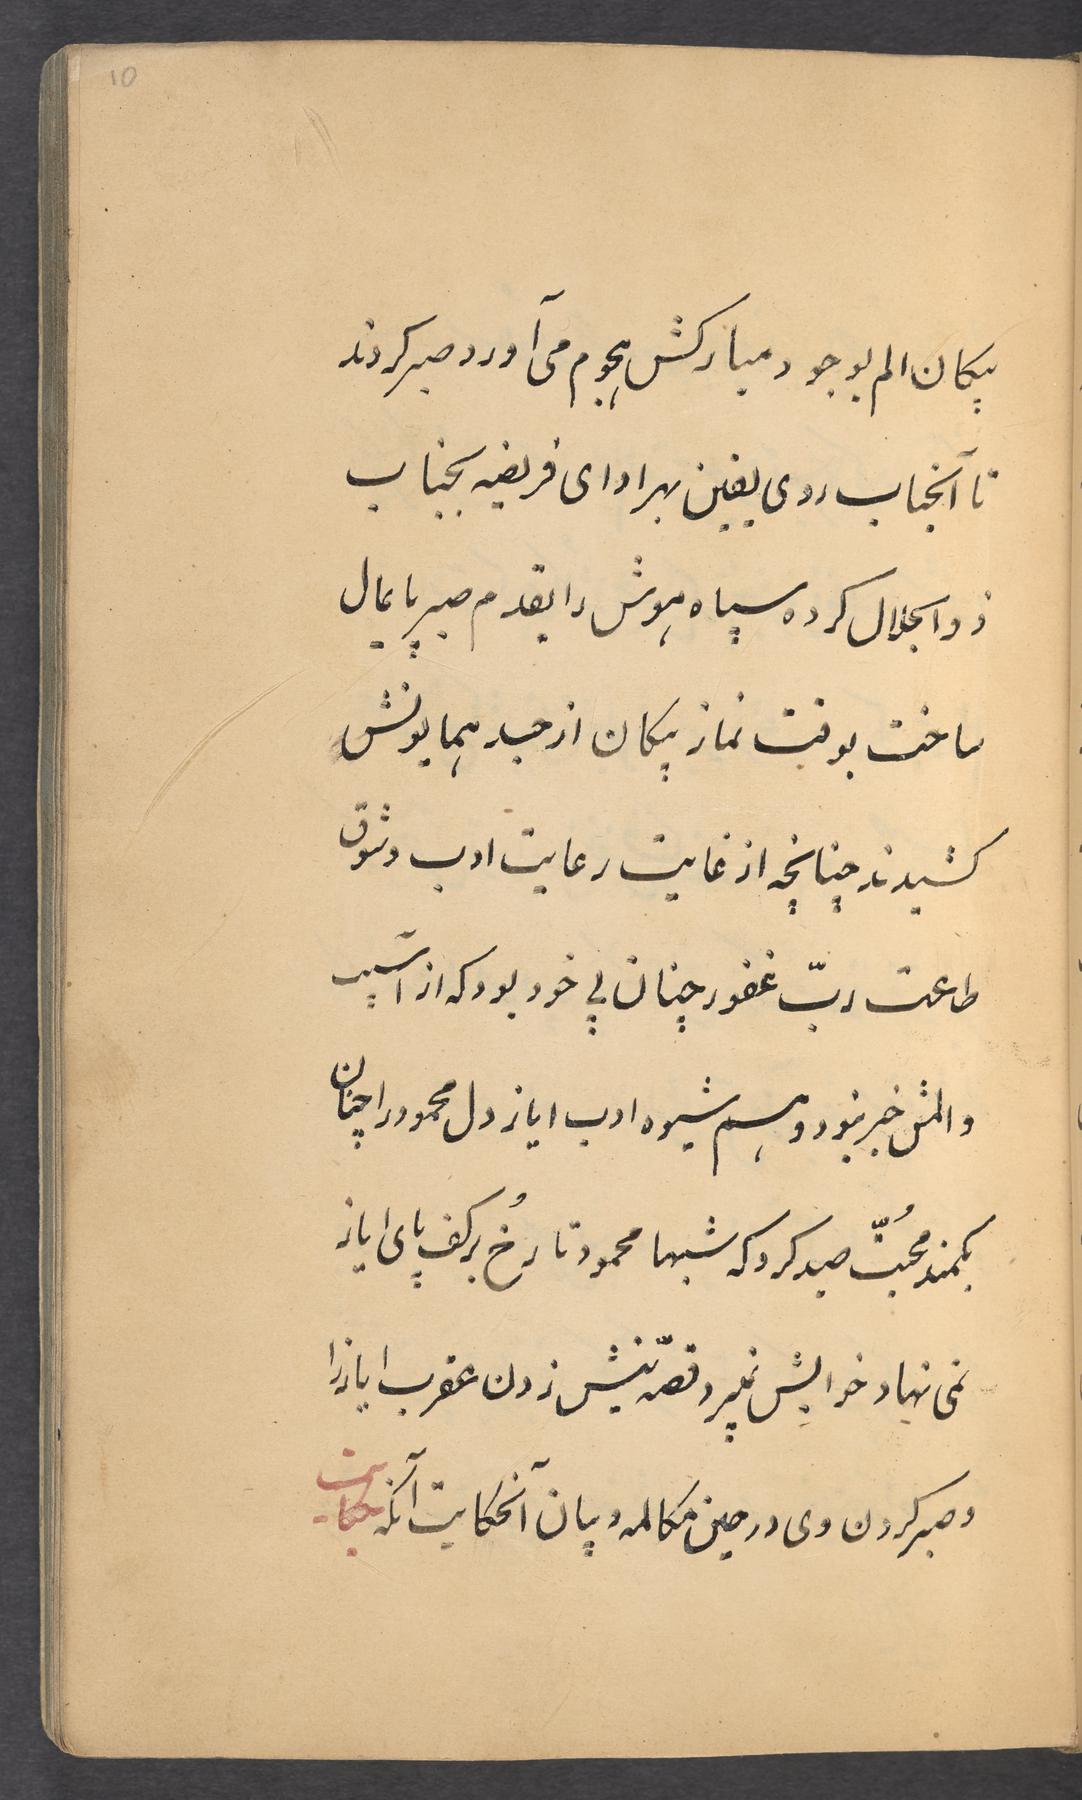 10
پیکان الم بوجود مبارکش هجوم می آورد صبر کردند
تا آنجناب روی یقین بهر ادای فریضه بجناب
ذو الجلال کرده سپاه هوش را بقدم صبر پایمال
ساخت بوقت نماز پیکان از جسد همایونش
کشیدند چنانچه از غایت رعایت ادب و شوق
طاعت ربّ غفور چنان بی خود بود که از آسیب
و المش خبر نبود و هم شیوه ادب ایاز دل محمود را چنان
بکمند محُبّت صید کرد که شبها محمود تا رُخ بر کف پای ایاز
نمی نهاد خوابش نمیبرد قصّه نیش زدن عقرب ایاز را
و صبر کردن وی در حین مکالمه و بیان آنحکایت آنکه حکایت